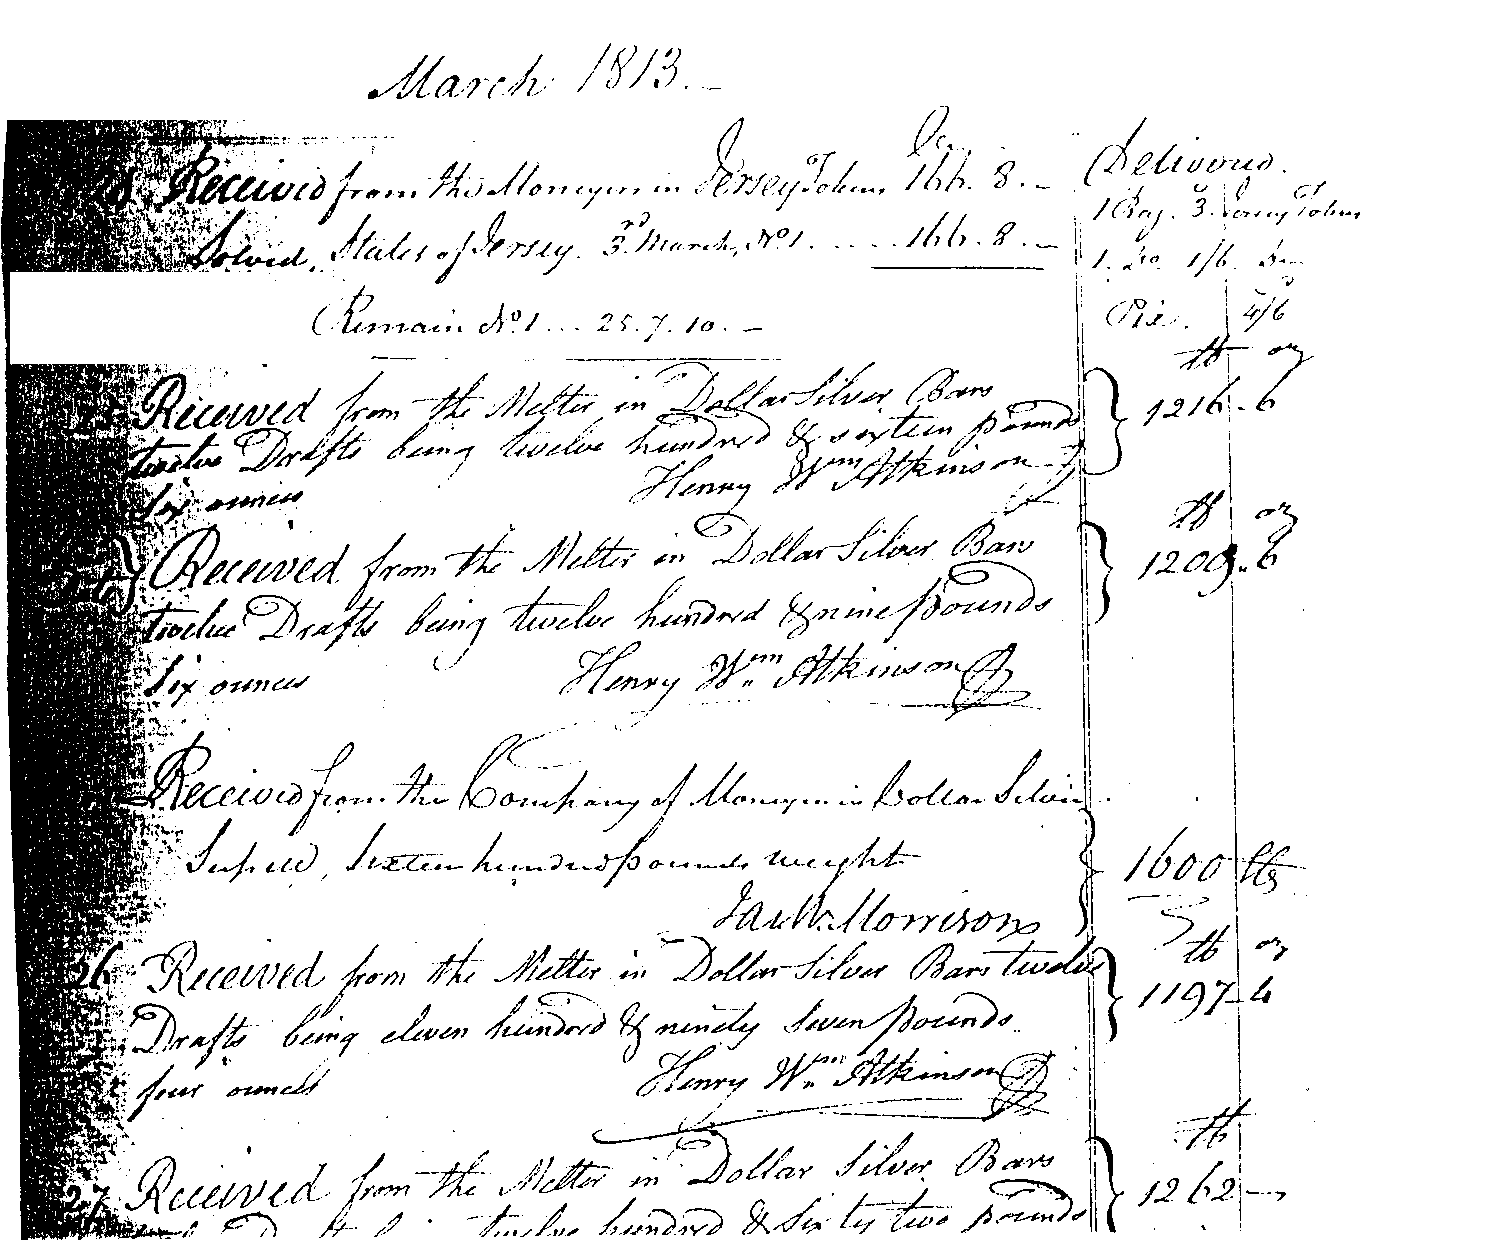 March 1813.
Received from the Moneyers in Jersey Tokens 166. 8. – Delivered.
1 Bag. 3. Jersey Tokens
States of Jersey. 3rd March, No 1. .... 166. 8. –
1. Do. 1/6
Remain No 1 ... 25. 7. 10. –
lb oz
25 Received from the Melter in Dollar Silver Bars 1216 . 6
twelve Drafts being twelve hundred & sixteen pounds
six ounces Henry Wm Atkinson
lb oz
Received from the Melter in Dollar Silver Bars 1209 . 6
twelve Drafts being twelve hundred & nine pounds
six ounces Henry Wm Atkinson
Received from the Company of Moneyers in Dollar Silver
sixteen hundred pounds weight 1600 lbs
Jas Wm Morrison
lb oz
26 Received from the Melter in Dollar Silver Bars twelve 1197 – 4
Drafts being eleven hundred & ninety seven pounds
four ounces Henry Wm Atkinson
lb
27 Received from the Melter in Dollar Silver Bars 1262 –
twelve hundred & Sixty two pounds